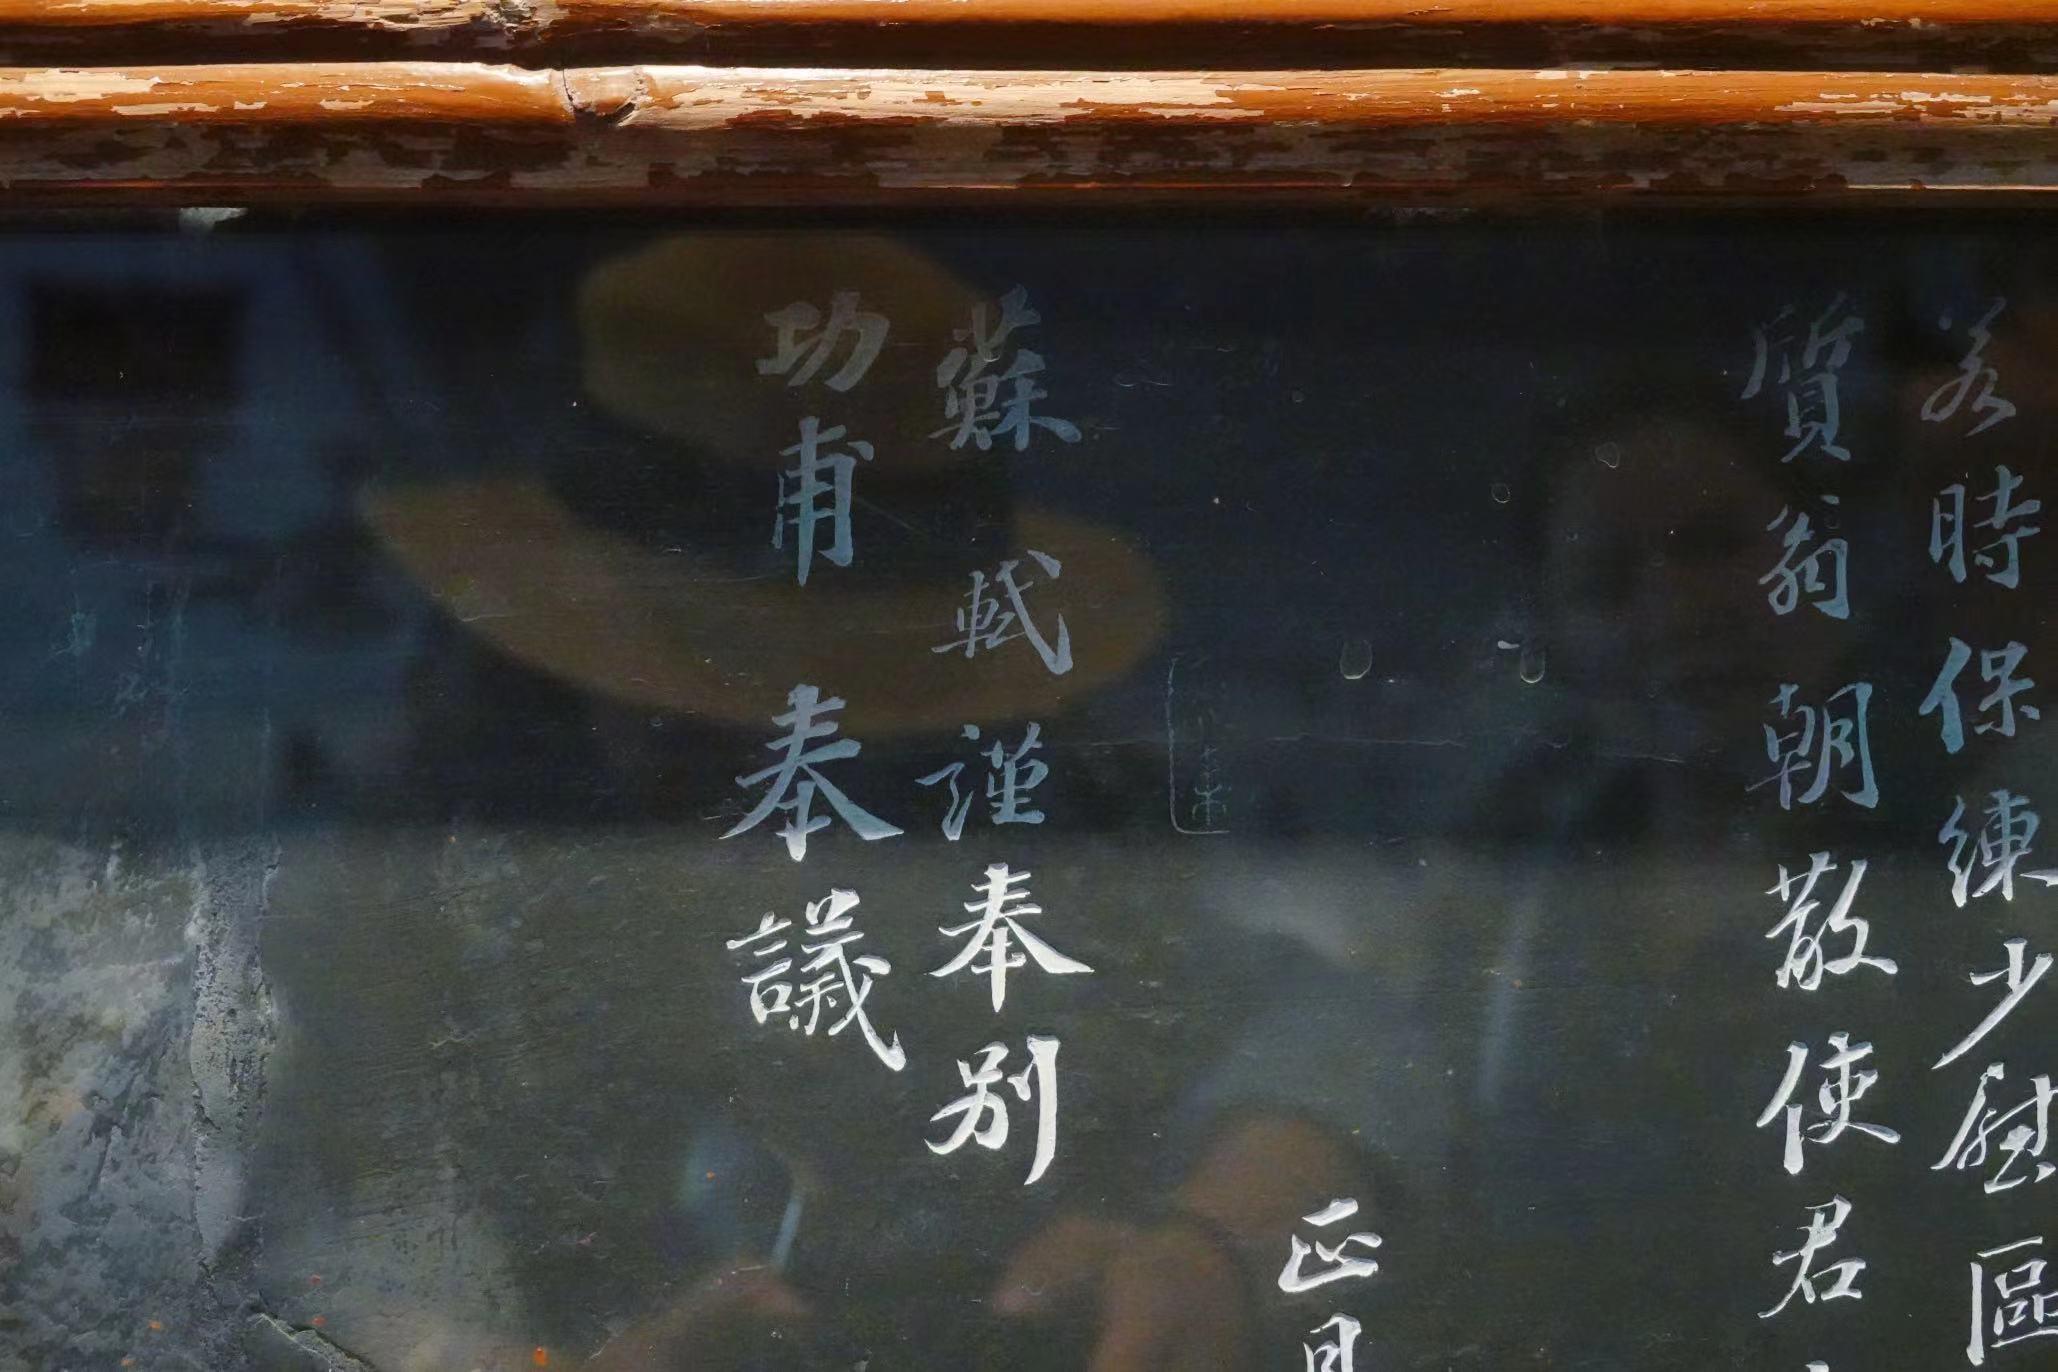 若時保練少慰區
質翁朝散使君
正月
蘇軾謹奉別
功甫奉議